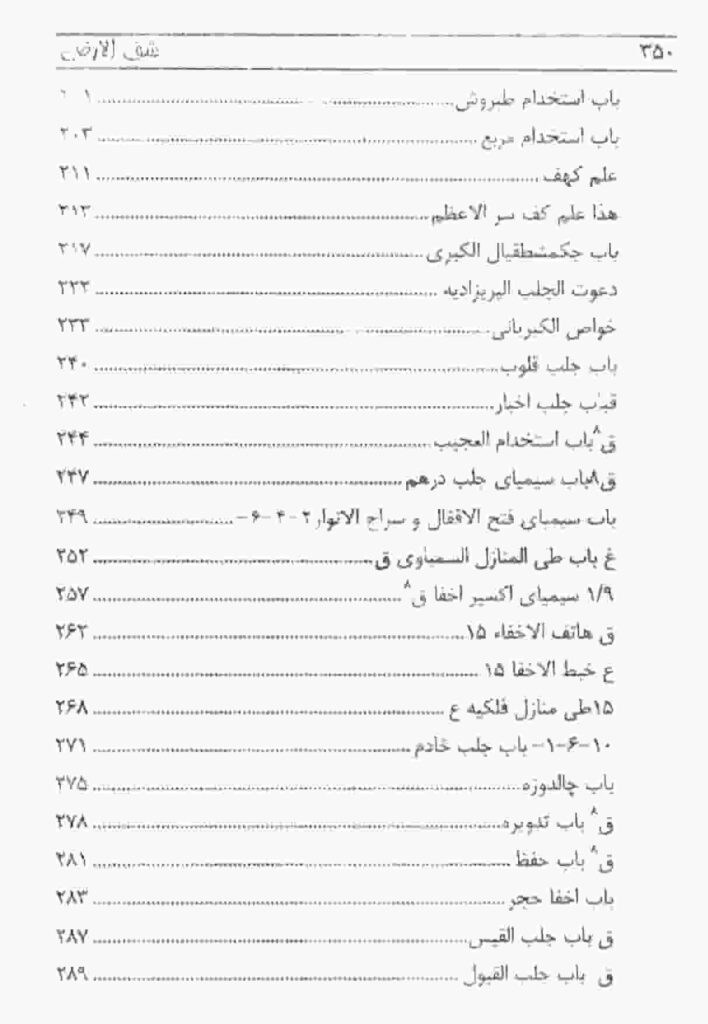 ۳۵۰ شق الارض
باب استخدام طبروش ۲۰۱
باب استخدام مربع ۲۰۳
علم کهف ۲۱۱
هذا علم کف سر الاعظم ۲۱۳
باب جکمشطقیال الکبری ۲۱۷
دعوت الجلب البریزادیه ۲۲۲
خواص الکبریانی ۲۳۳
باب جلب قلوب ۲۴۰
جلب اخبار ۲۴۲
ق۸ باب استخدام العجیب ۲۴۴
ق۸ باب سیمیای جلب درهم ۲۴۷
باب سیمیای فتح الاقفال و سراج الانوار ۲-۴-۶- ۲۴۹
غ باب طی المنازل السماوی ق ۲۵۲
۱/۹ سیمیای اکسیر اخفا ق۸ ۲۵۷
ق هاتف الاخفاء ۱۵ ۲۶۲
ع خبط الاخفا ۱۵ ۲۶۵
۱۵طی منازل فلکیه ع ۲۶۸
۱۰-۶-۱- باب جلب خادم ۲۷۱
باب چالدوزه ۲۷۵
ق۸ باب تدویره ۲۷۸
ق۸ باب حفظ ۲۸۱
باب اخفا حجر ۲۸۳
ق باب جلب القیس ۲۸۷
ق باب جلب القبول ۲۸۹